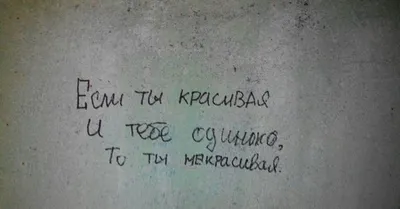 Если ты красивая
И тебе одиноко,
То ты некрасивая.